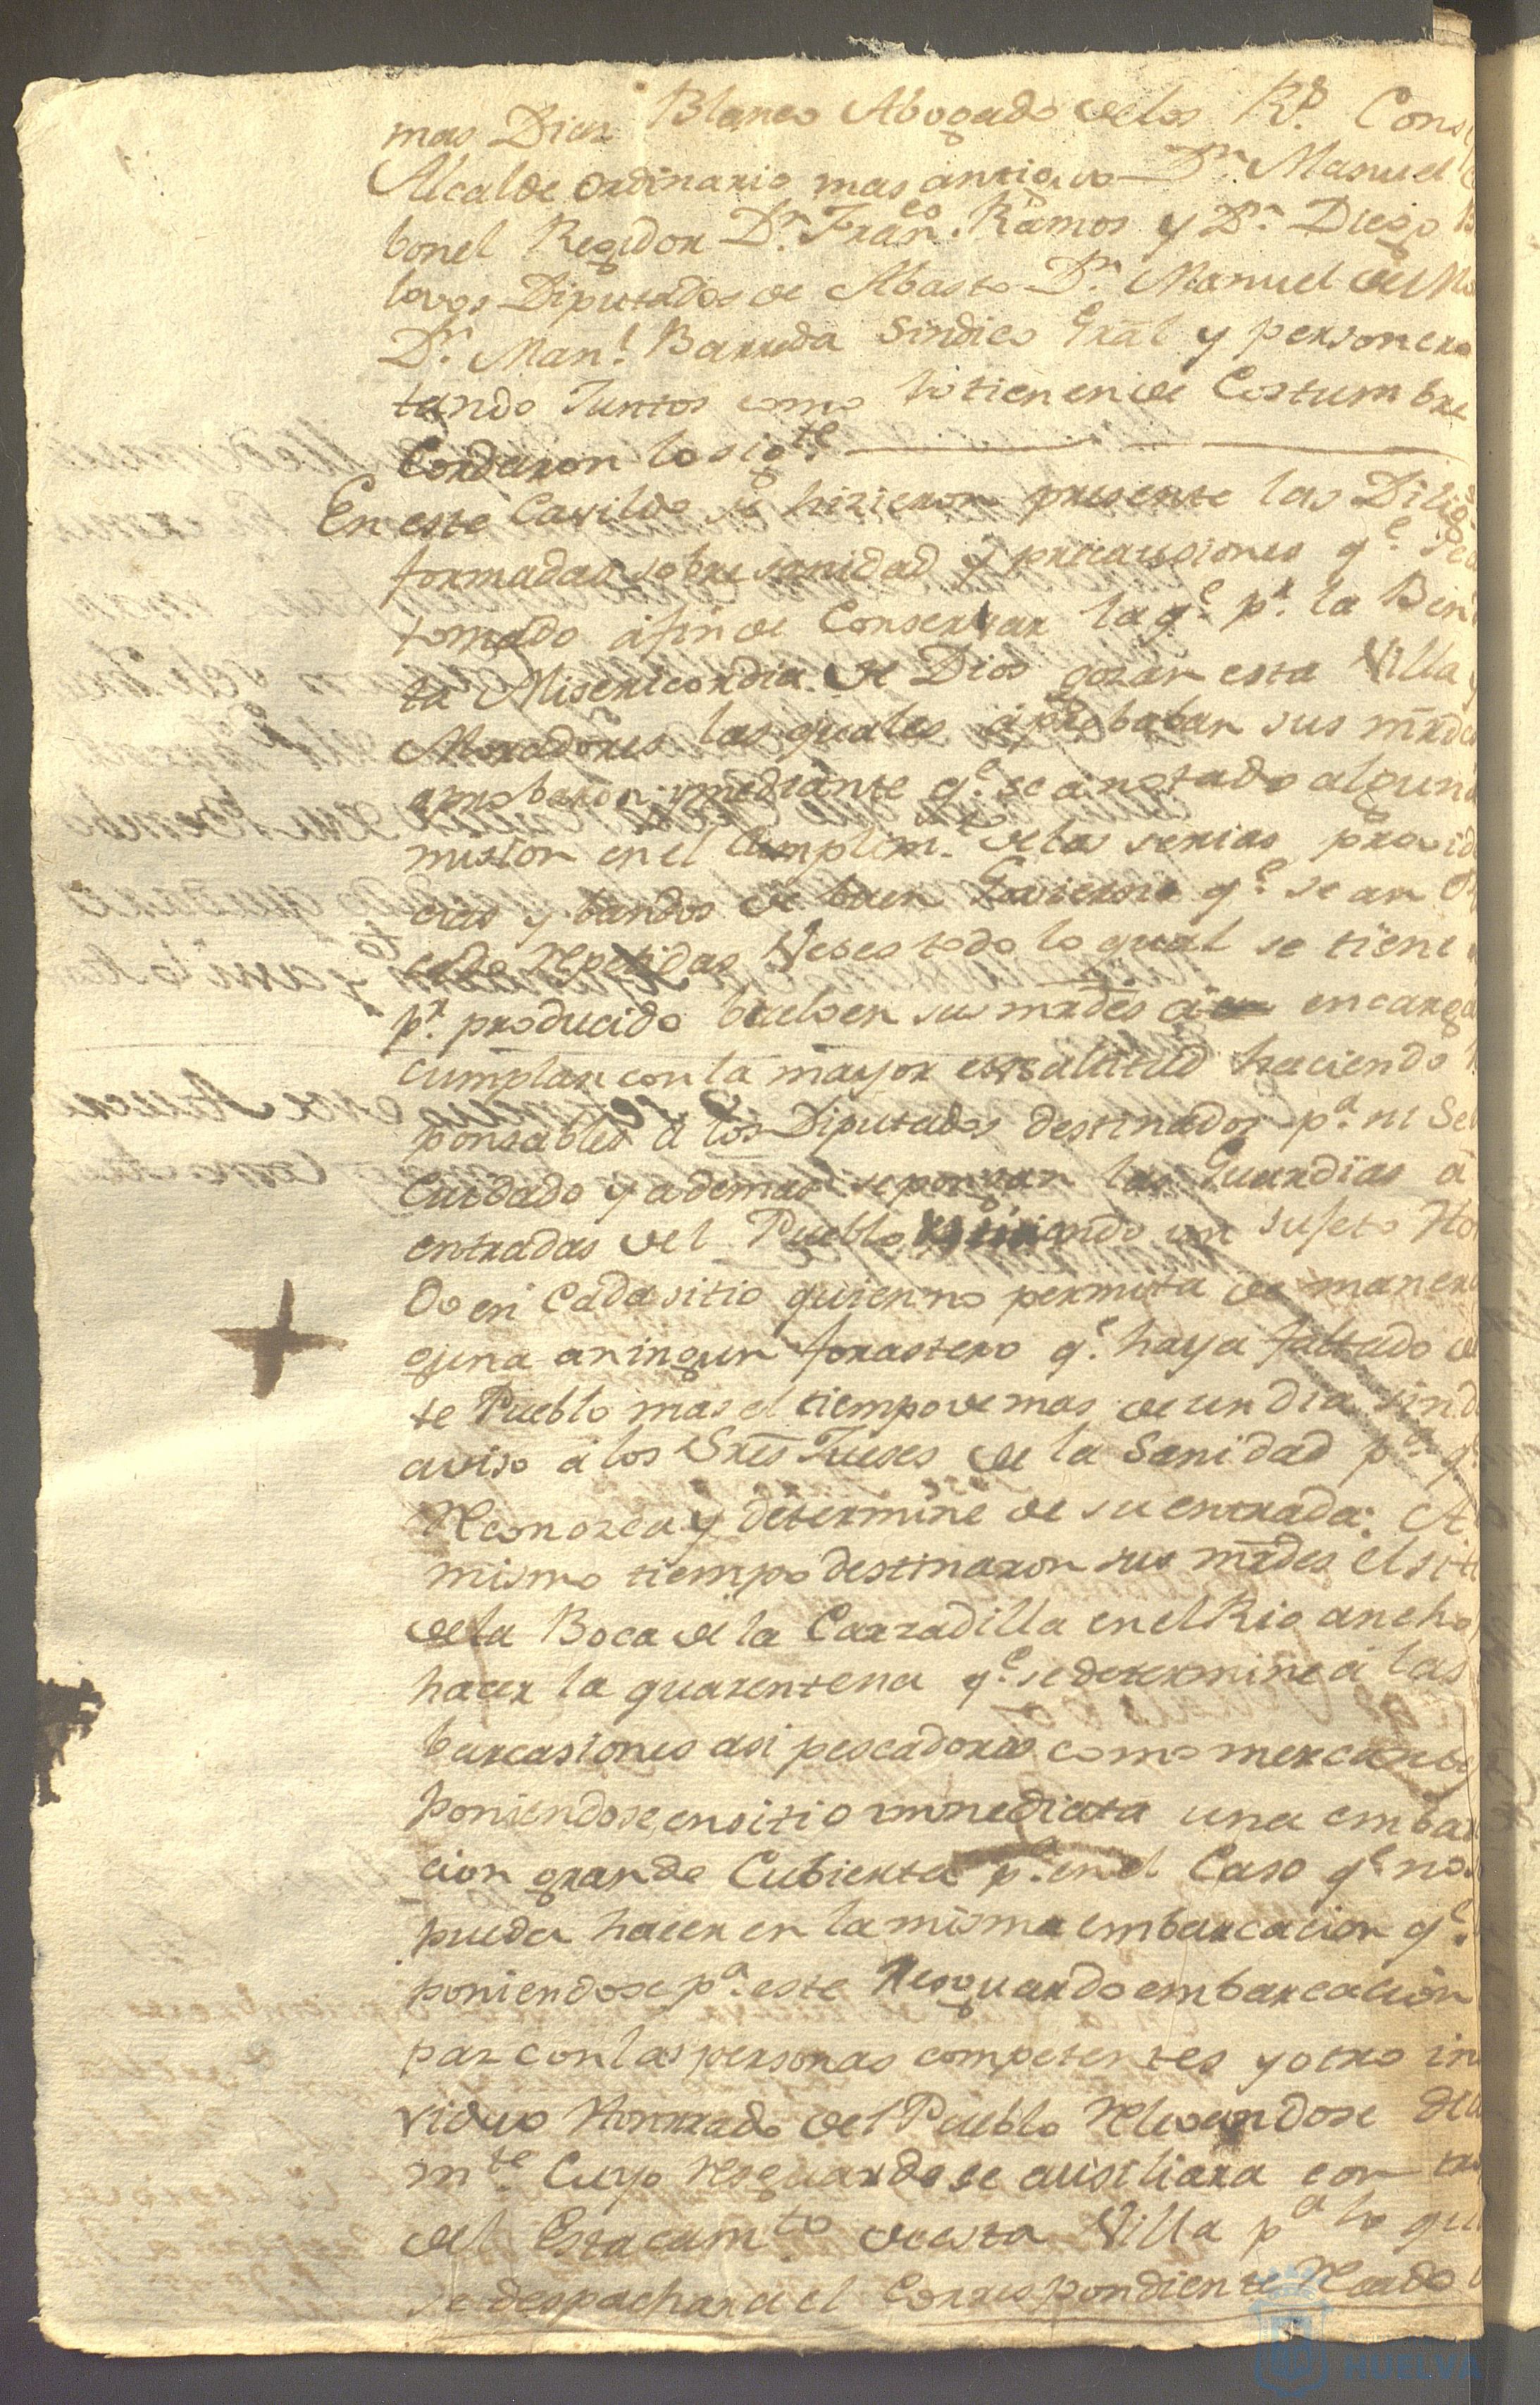 mas Diaz Blanco Abogado de los R.s Cons
Alcalde ordinario mas antiguo Dn. Manuel
bonel Regidor Dn. Franco. Ramos y Dn. Diego
lovos Diputados de Abasto Dn. Manuel de Mo
Dn. Manl. Barreda Sindico Gral y personero
tando Juntos como lo tienen de Costumbre
Cordaron lo sigte.
En este Cavildo se hizieron presente las Dilig
formadas sobre sanidad y precausiones qe. se a
tomado a fin de Conservar la qe. pr. la Ben
ta Misericordia de Dios gozan esta Villa y
Moradores las quales aprobaban sus mrdes
aprobaron y mediante qe. se a notado alguna
mision en el Cumplimto. de las serias provid
cias y bandos de buen Govierno qe. se an
cado repetidas Veces todo lo qual se tiene
pr. producido buelven sus mrdes a encarga
cumplan con la mayor essactitud haciendo
ponsables a los Diputados destinados pa.
Cuidado y ademas se pongan las Guardias a
entradas del Pueblo un sujeto Ho
do en Cada sitio quien no permita de maner
guna a ningun forastero qe. haya faltado de
te Pueblo mas el tiempo de mas de un dia sin d
aviso a los Sres Jueses de la Sanidad pa. qe.
Reconozca y determine de su entrada: A
mismo tiempo destinaron sus mrdes el siti
de la Boca de la Cazadilla en el Rio ancho
hacer la quarentena qe. se determine a las
barcasiones asi pescadoras como mercante
poniendose en sitio immediata una embar
cion grande Cubierta pa. en el Caso qe. no
puedan hacer en la misma embarcacion qe.
poniendose pa. este Resguardo embarcacion
paz con las personas competentes y otro in
viduo Honrrado del Pueblo Relevandose
mte. Cuyo resguardo se ausiliara con
del Estacamto. de esta Villa pa. lo qu
se despachara el Correspondiente Recado
HUELVA